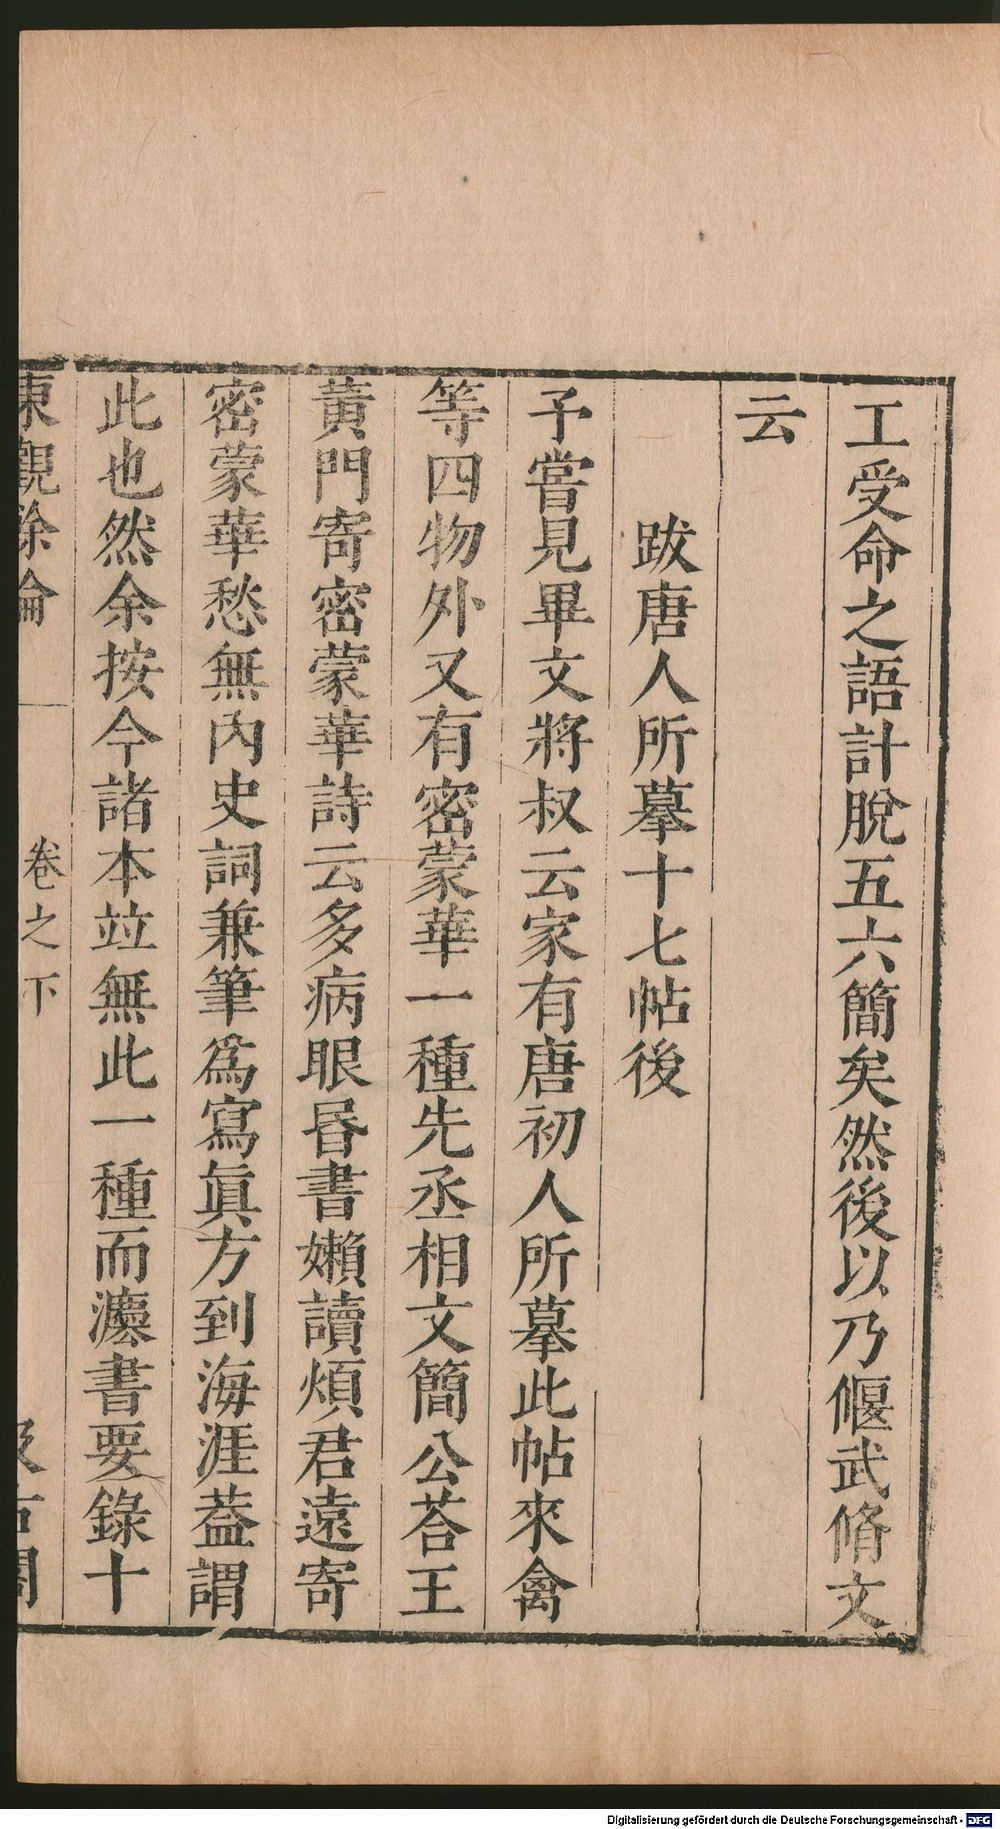 工受命之語計脫五六簡矣然後以乃偃武脩文
云
跋唐人所摹十七帖後
予嘗見畢文將叔云家有唐初人所摹此帖來禽
等四物外又有密蒙華一種先丞相文簡公荅王
黃門寄密蒙華詩云多病眼昬書嬾讀煩君遠寄
密蒙華愁無內史詞兼筆爲寫眞方到海涯葢謂
此也然余按今諸本竝無此一種而灋書要錄十
東觀餘論 卷之下 汲古閣
Digitalisierung gefördert durch die Deutsche Forschungsgemeinschaft - DFG